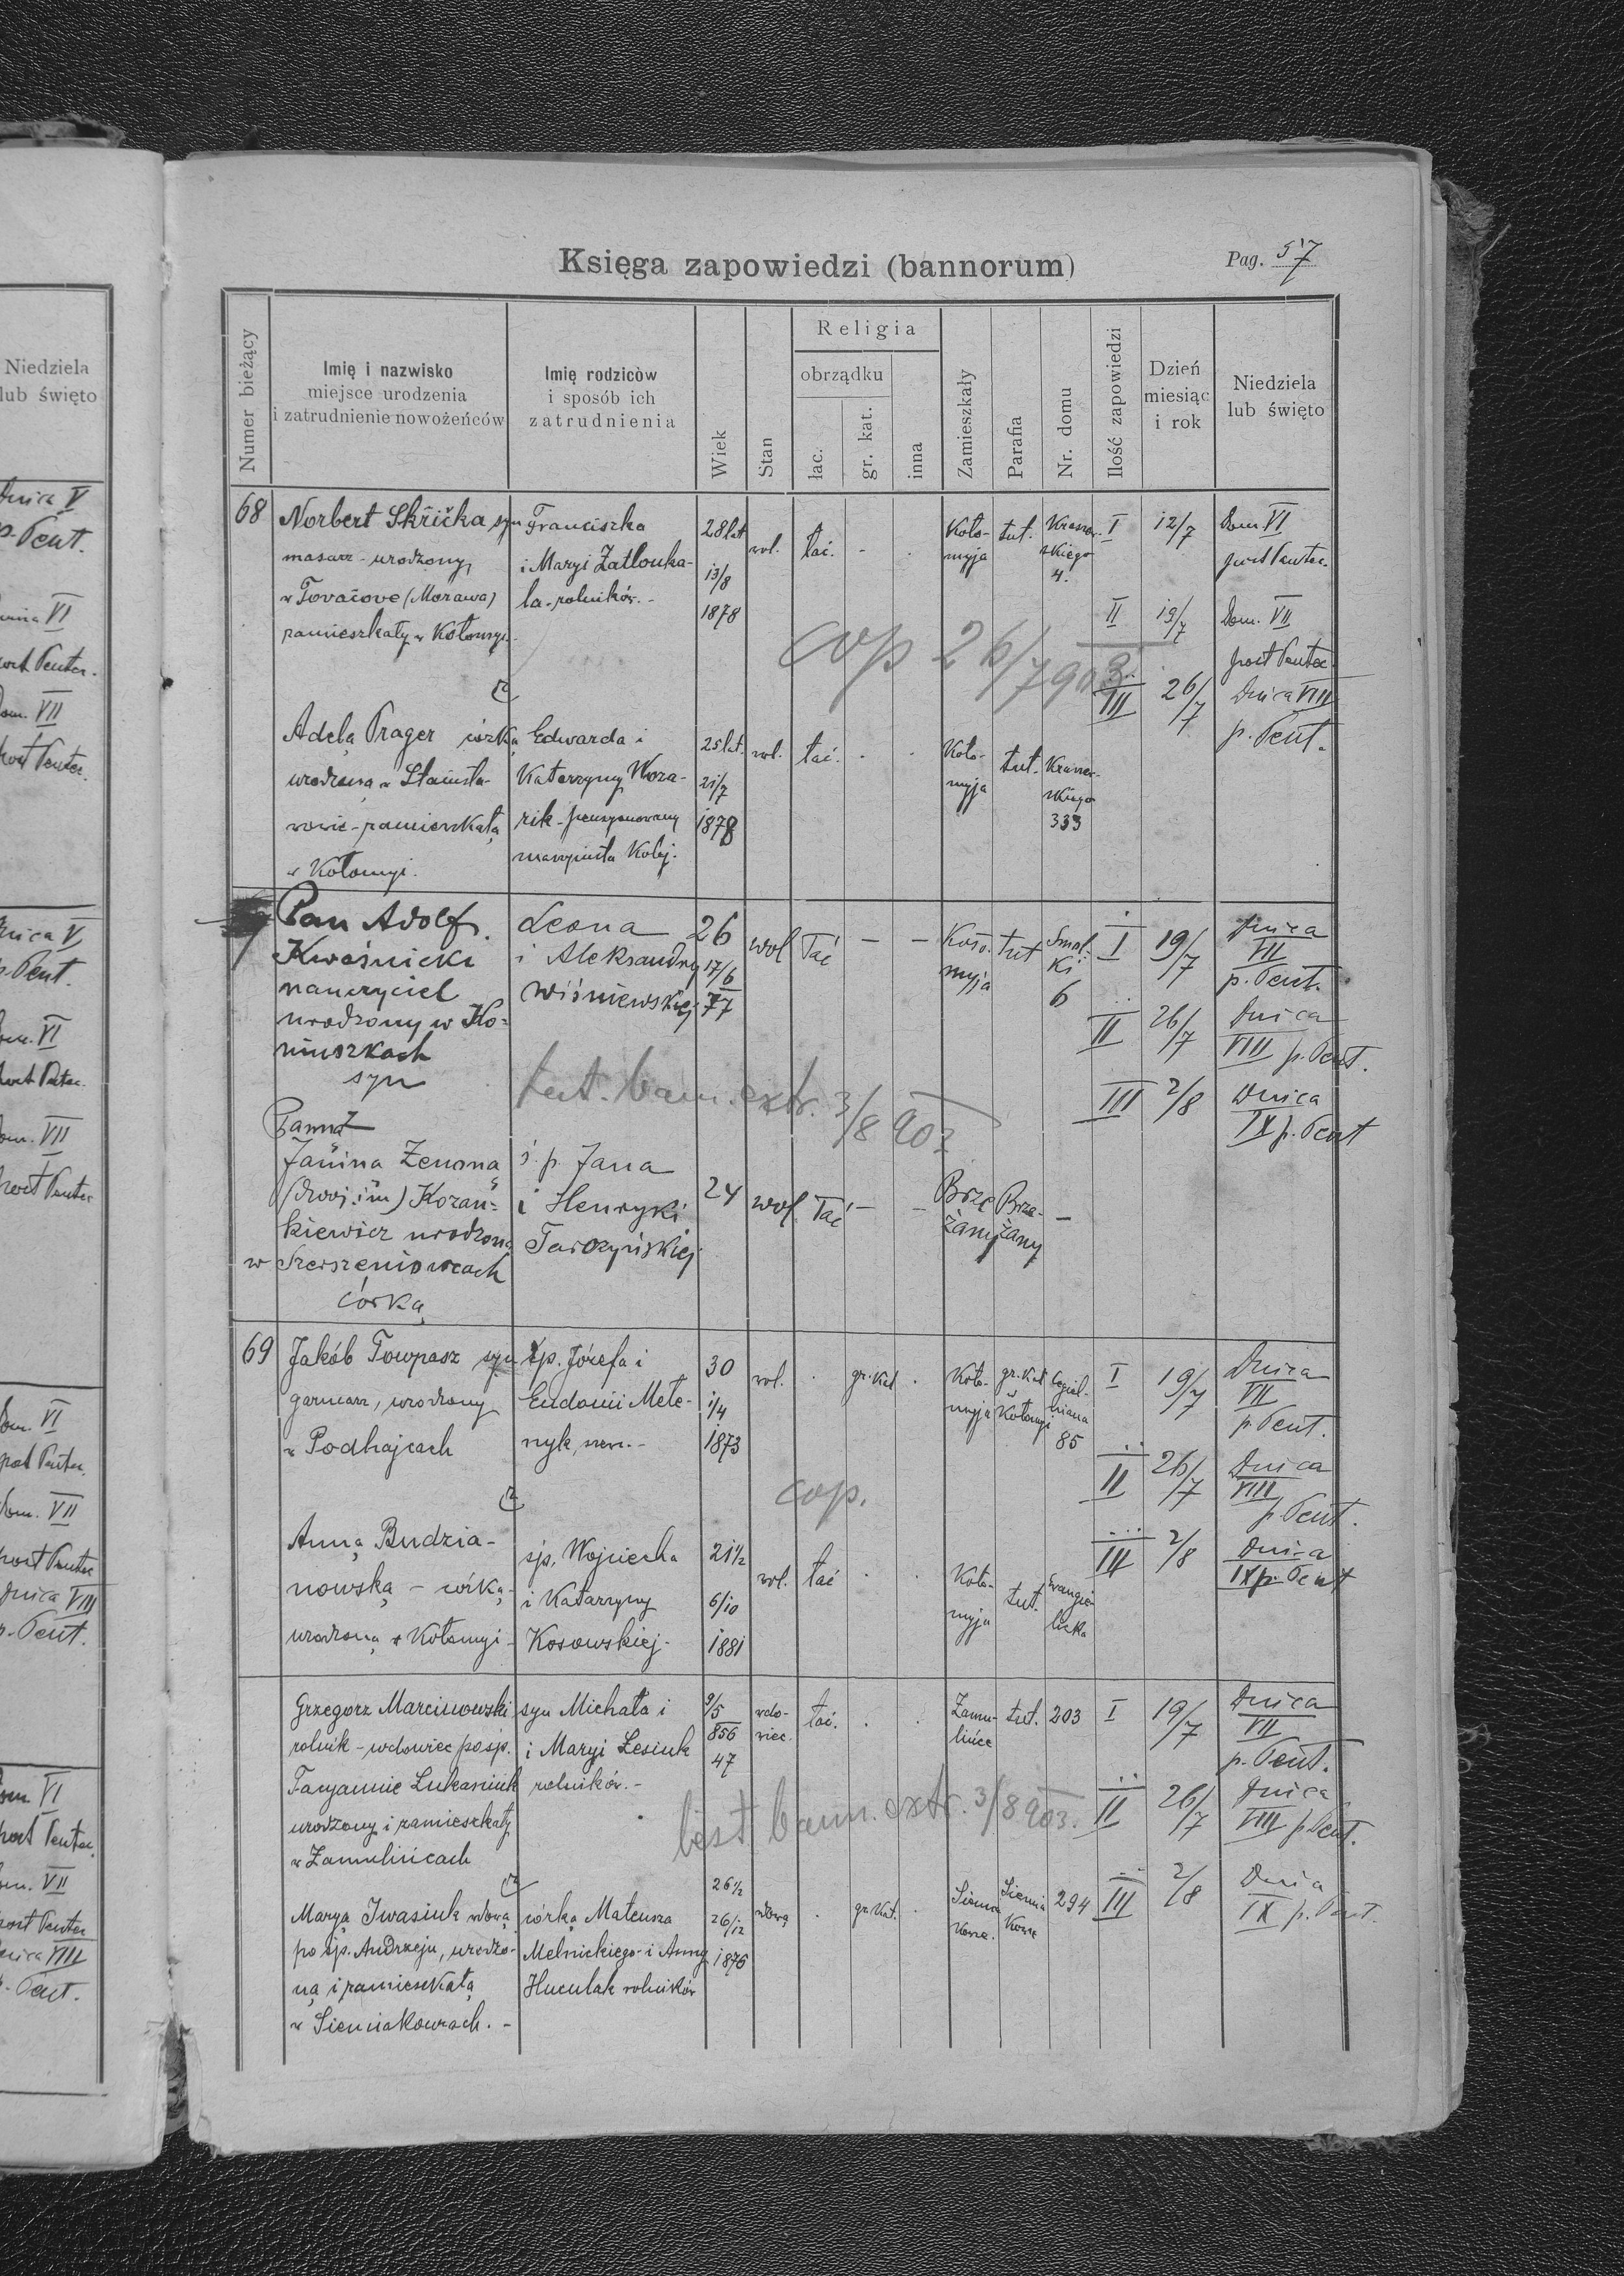 Księga zapowiedzi (bannorum)
Pag. 57
Numer bieżący
Imię i nazwisko
miejsce urodzenia
i zatrudnienie nowożeńców
Imię rodziców
i sposób ich
zatrudnienia
Wiek
Stan
Religia
obrządku
łac.
gr. kat.
inna
Zamieszkały
Parafia
Nr. domu
Ilość zapowiedzi
Dzień
miesiąc
i rok
Niedziela
lub święto
68
Norbert Skřička syn
masarz - urodzony
w Tovačove (Morawa)
zamieszkały w Kołomyi.
Franciszka
i Maryi Zatlouka-
la - rolników. -
28 lat
13/8
1878
wol.
łać.
-
.
Koło-
myja
tut.
skiego
4.
I
12/7
Dom VI
post Pentec.
II
19/7
Dom. VII
post Pentec.
III
26/7
Dnica VIII
p. Pent.
cop 26/7 903
Z
Adelą Prager córką
urodzoną w Stanisła-
wowie - zamieszkałą
w Kołomyi.
Edwarda i
Katarzyny Woza-
rik - pensyonowany
maszynista Kolej.
25 lat.
21/7
1878
wol.
łać.
.
.
Koło-
myja
tut.
333
Pan Adolf
Kwaśnicki
nauczyciel
urodzony w Ko-
niuszkach
syn
Leona
i Aleksandry
Wiśniewskiej
26
17/6
77
wol
łać
-
-
Koło-
myja
tut
Smol-
ki
6
I
19/7
Dnica
VII
p. Pent.
II
26/7
Dnica
VIII p. Pent.
III
2/8
Dnica
IX p. Pent
test. bann. extr. 3/8 903
Panna
Janina Zenona
(dwoj. im) Kozań-
kiewicz urodzona
w Szerszeniowcach
córką
ś. p. Jana
i Henryki
Tarczyńskiej
24
wol.
łać
-
-
Brze
żany
Brze-
żany
-
69
Jakób Towpasz syn
garncarz, urodzony
w Podhajcach
śp. Józefa i
Eudoxii Mele-
nyk,
30
1/4
1873
wol.
.
gr. kat
.
Koło-
myja
gr. kat
w
Kołomyi
Cegiel-
niana
85
I
19/7
Dnica
VII
p. Pent.
II
26/7
Dnica
VIII
p. Pent.
III
2/8
Dnica
IX p. Pent
cop.
Z
Anną Budzia-
nowską - córką
urodzoną w Kołomyi -
śp. Wojciecha
i Katarzyny
Kosowskiej -
21 1/2
6/10
1881
wol.
łać
.
.
Koło-
myja
tut.
Ewangie-
licka
Grzegorz Marcinowski
rolnik - wdowiec po śp.
Tacyannie Łukasiuk
urodzony i zamieszkały
w Zamulińcach
syn Michała i
i Maryi Lesiuk
rolników. -
9/5
856
47
wdo-
wiec.
łać.
.
.
Zamu-
lińce
tut.
203
I
19/7
Dnica
VII
p. Pent.
II
26/7
Dnica
VIII p. Pent.
III
2/8
Dnica
IX p. Pent.
test bann. extr. 3/8 903.
Z
Maryą Iwasiuk wdową
po śp. Andrzeju, urodzo-
ną i zamieszkałą
w Siemiakowcach. -
córką Mateusza
Melnickiego i Anny
Huculak rolników
26 1/2
26/12
1876
wdową
.
gr. kat.
.
Siemia
kowce.
Siemia
kowce
294
Niedziela
lub święto
Dnica V
p. Pent.
Dom. VII
post Pentec.
Dnica V
p. Pent.
Dom. VI
Dom. VII
post Pentec
Dom. VI
post Pentec.
Dom. VII
post Pentec
Dnica VIII
p. Pent.
Dom VI
post Pentec.
Dom. VII
post Pentec
Dnica VIII
p. Pent.